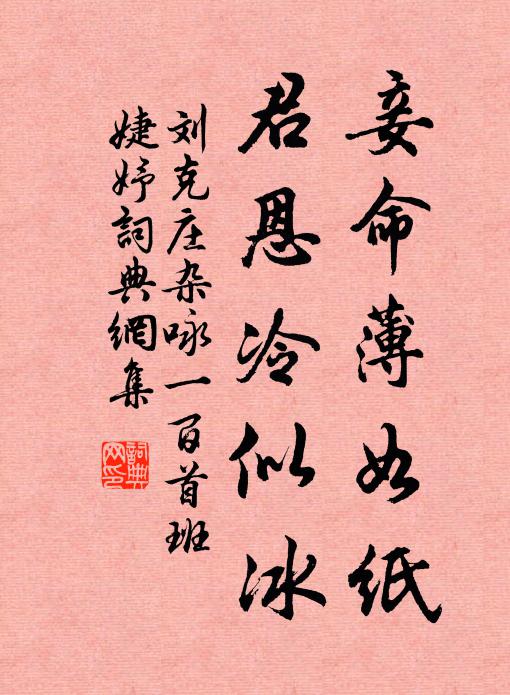 妾命薄如紙
君恩冷似冰
刘克庄杂咏一百首班
婕妤詞典網集
詞典
网印